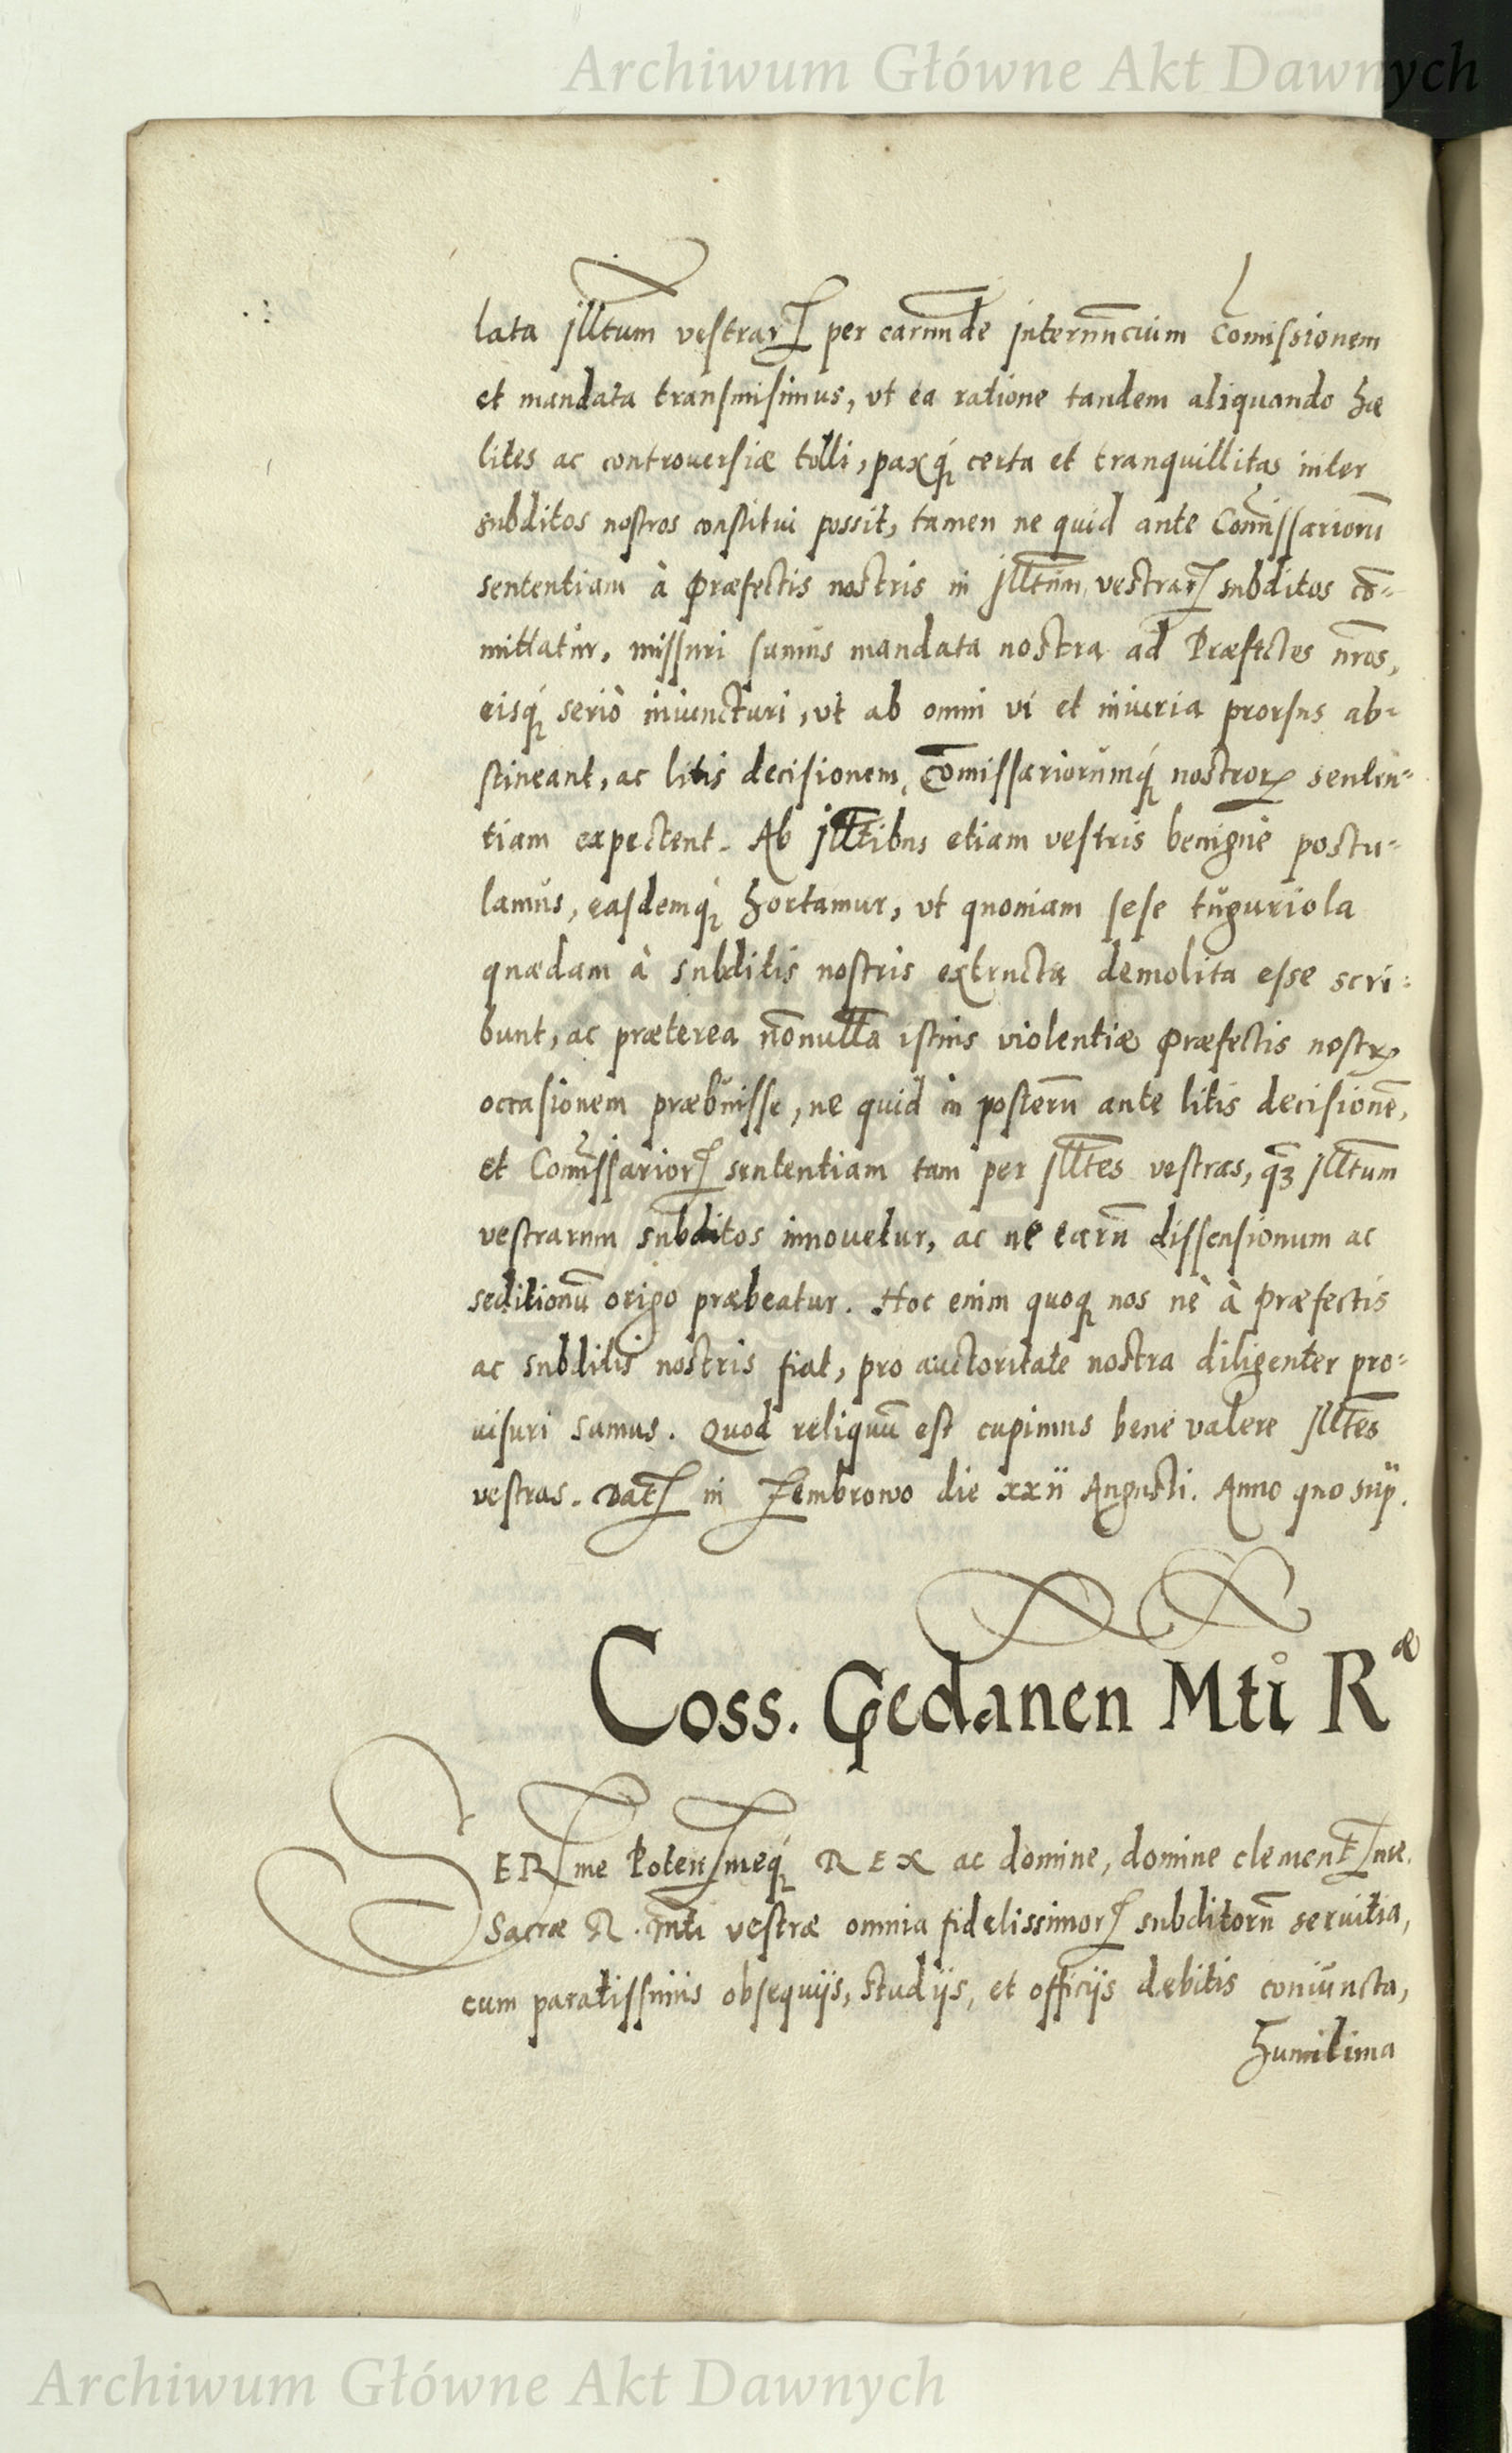 Archiwum Główne Akt Dawnych
lata Jlltum vestrarꝝ per earunde internuncium Comissionem
et mandata transmisimus, vt ea ratione tandem aliquando hæ
lites ac controuersiæ tolli, paxq́ꝫ certa et tranquillitas inter
subditos nostros constitui possit, tamen ne quid ante Com̄issariorū
sententiam à Præfectis nostris in Jlltum vestrarꝝ subditos cō-
mittatur, missuri sumus mandata nostra ad Præfectos nr̄os,
eisq́ꝫ seriò iniuncturi, vt ab omni vi et iniuria prorsus ab-
stineant, ac litis decisionem, Com̄issariorumq́ꝫ nostrorꝝ senten-
tiam expectent. Ab Jlltibus etiam vestris benignè postu-
lamus, easdemq́ꝫ hortamur, vt quoniam sese tuguriola
quædam à subditis nostris extructa demolita esse scri-
bunt, ac præterea nōnulla istius violentiæ Præfectis nostrꝭ
occasionem præbuisse, ne quid in posterū ante litis decisionē,
et Com̄issariorꝝ sententiam tam per Jlltes vestras, q̄ꝫ Jlltum
vestrarum subditos innouetur, ac ne earū dissensionum ac
seditionū origo præbeatur. Hoc enim quoqꝫ nos nè à Præfectis
ac subditis nostris fiat, pro auctoritate nostra diligenter pro-
uisuri sumus. Quod reliquū est cupimus bene valere Jlltes
vestras. Datꝭ in Zembrowo die xxii Augusti. Anno quo sup.
Coss. Gedanen Mti Ræ
SERme Potenmeq́ꝫ REX ac domine, domine clementme.
Sacræ R. mti vestræ omnia fidelissimorꝝ subditorū seruitia,
cum paratissimis obsequijs, studijs, et officijs debitis coniuncta,
humilima
Archiwum Główne Akt Dawnych